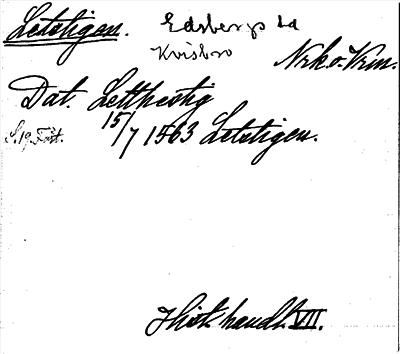 Letstigen. Edsbergs hd
Kvisbro Nrk o. Vrm.
Dat. Letthestig
15/7 1563 Letstigen.
Hist. handl. VIII.